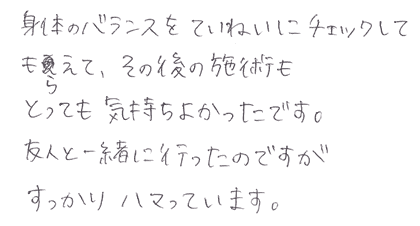 身体のバランスをていねいにチェックして
もらえて、その後の施術も
とっても気持ちよかったです。
友人と一緒に行ったのですが
すっかりハマっています。